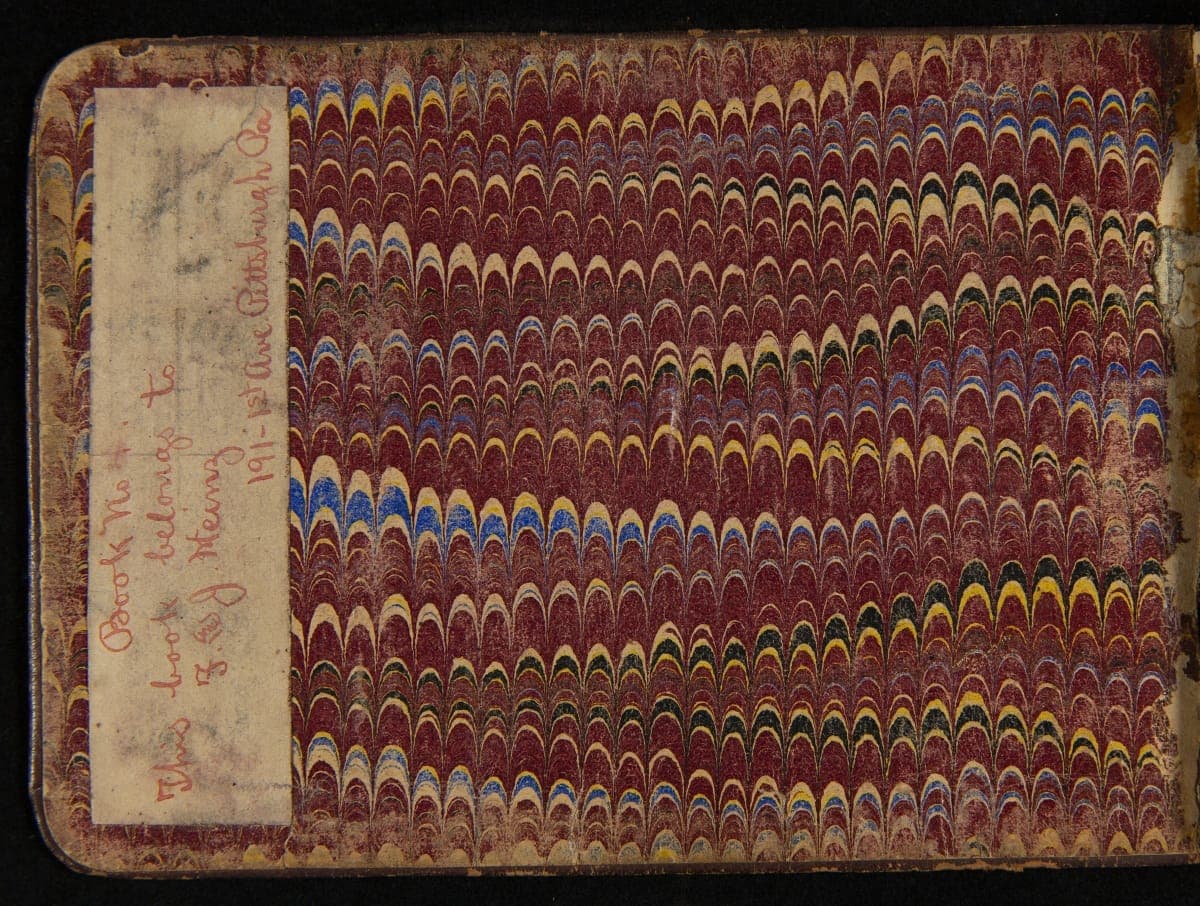 Book No 4.
This book belongs to
F. & J. Heinz
191 - 1st Ave Pittsburgh Pa